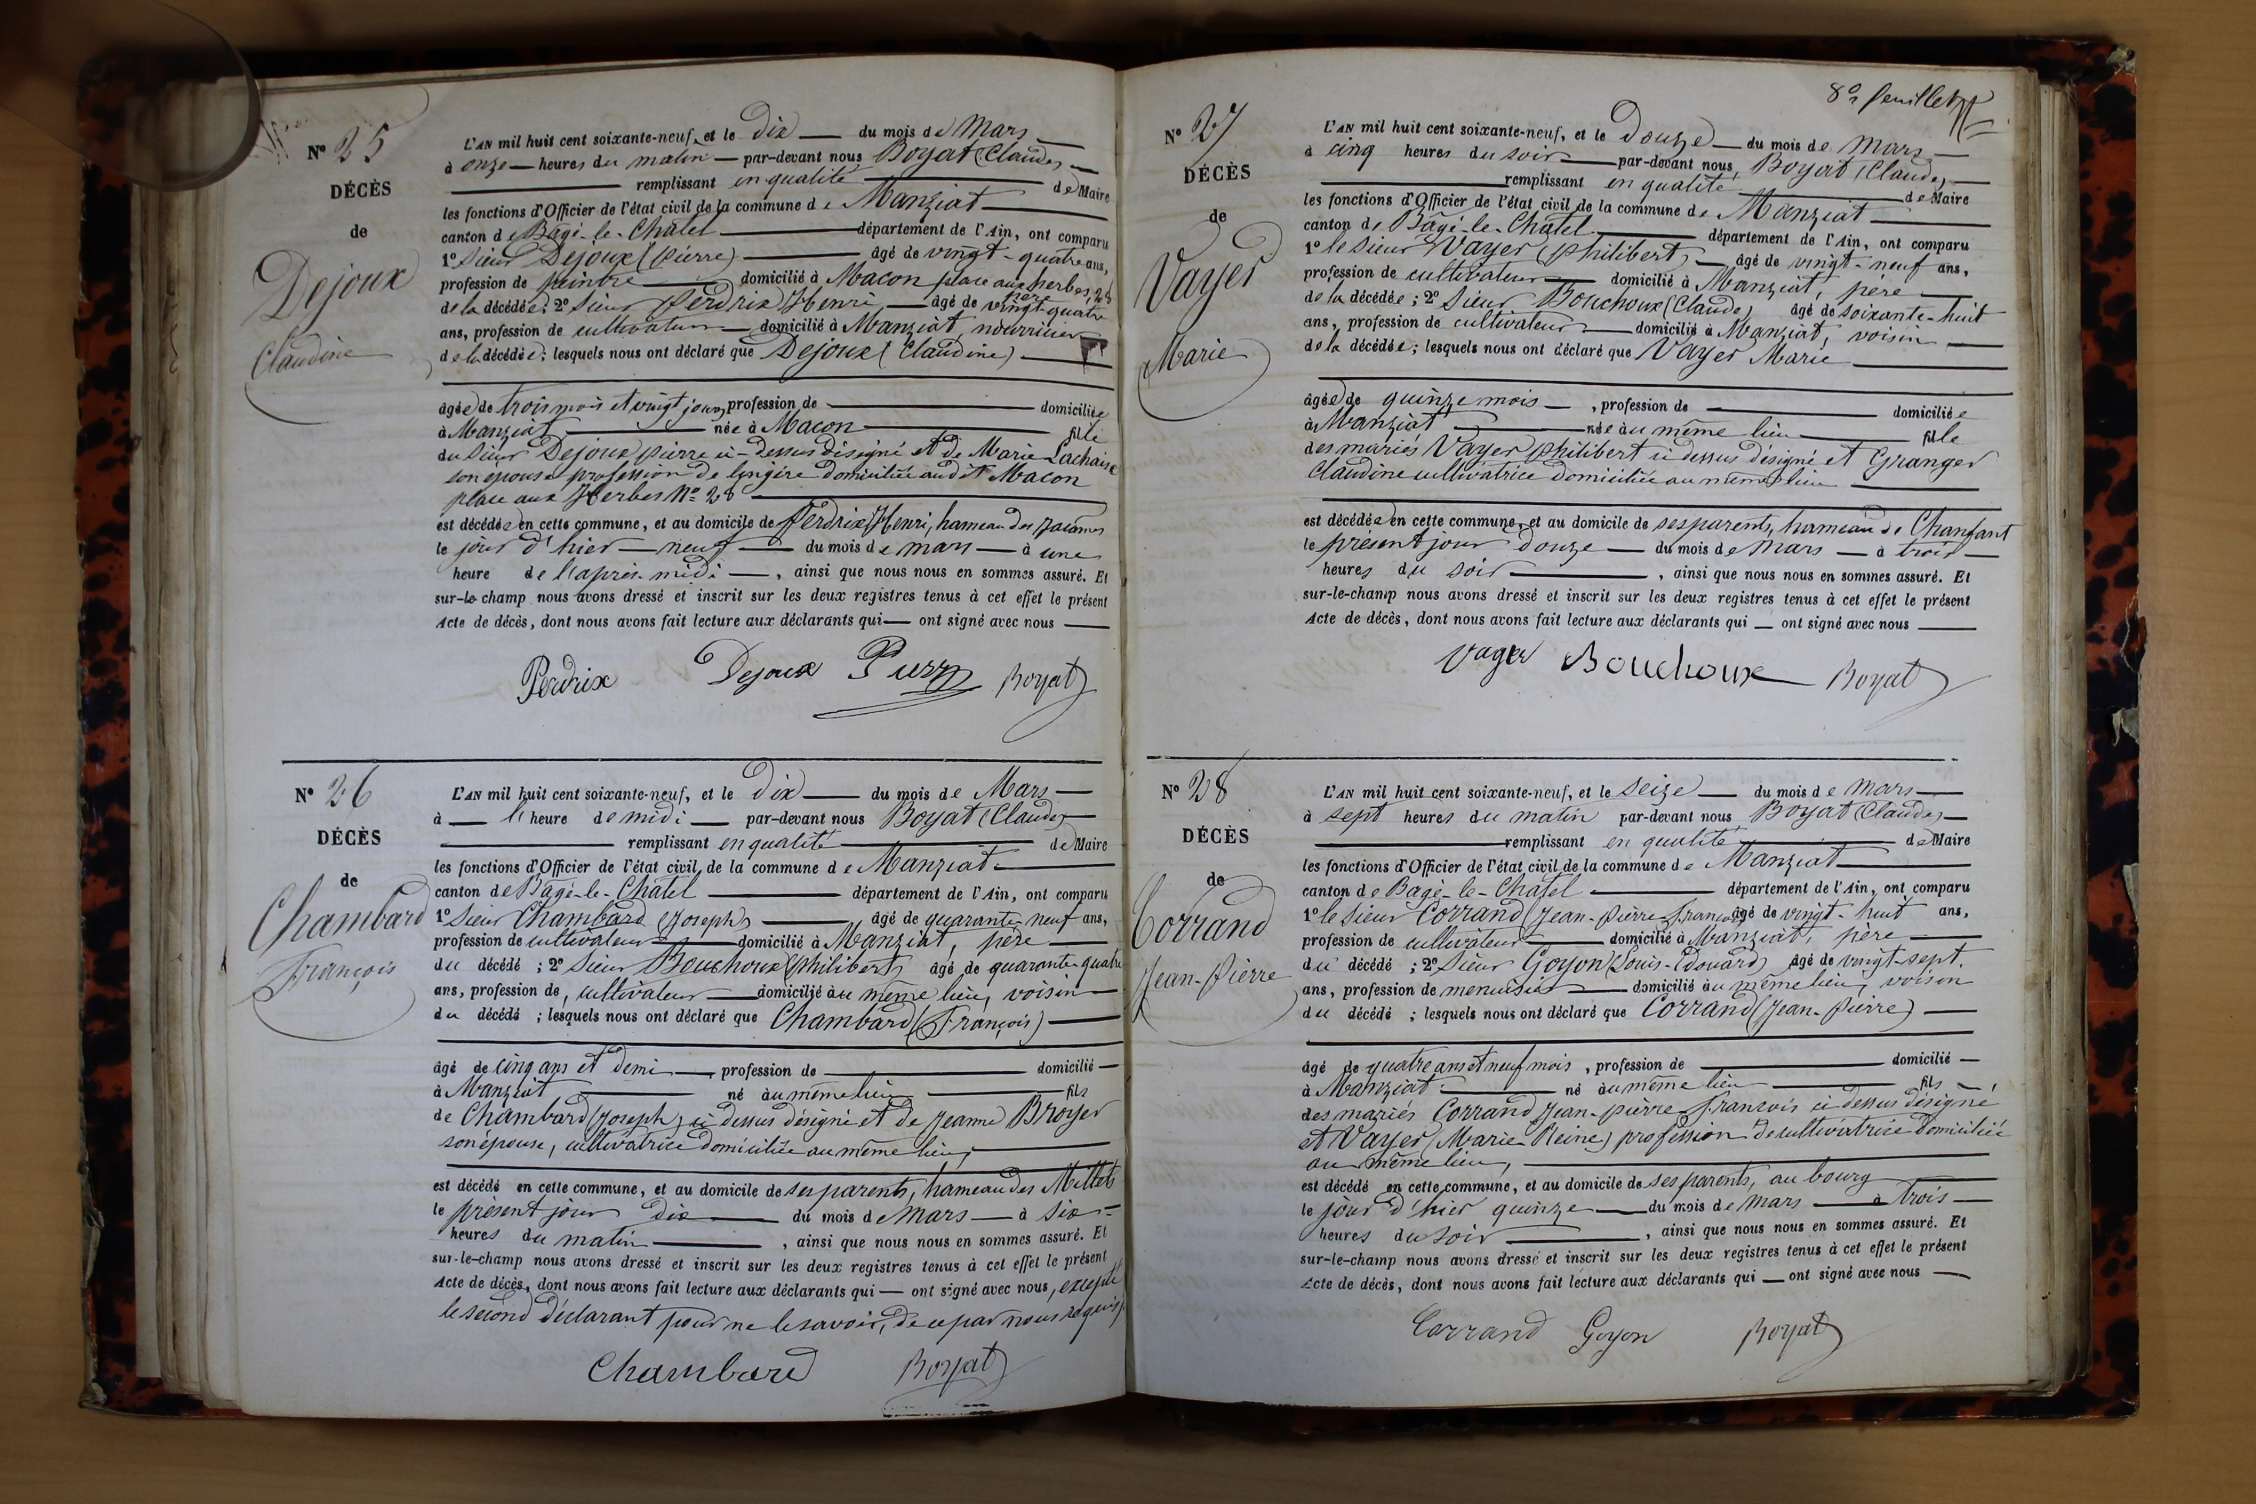 N° 25
DÉCÈS
de
Dejoux
Claudine
L'AN mil huit cent soixante-neuf, et le Dix du mois de Mars
à onze heures du matin par-devant nous Boyat (Claude)
remplissant en qualité de Maire
les fonctions d'Officier de l'état civil de la commune de Manziat
canton de Bâgé-le-Châtel département de l'Ain, ont comparu
1° Sieur Dejoux (pierre) âgé de vingt-quatre ans,
profession de peintre domicilié à Macon place aux herbes, 28
père
de la décédée; 2° Sieur Perdrix Henri âgé de vingt-quatre
ans, profession de cultivateur domicilié à Manziat, nourricier
de la décédée; lesquels nous ont déclaré que Dejoux (Claudine)
âgée de trois mois et vingt jours, profession de domiciliée
à Manziat née à Macon fille
du Sieur Dejoux pierre ci-dessus désigné et de Marie Lachaise
son épouse profession de lingère domiciliée audit Macon
place aux Herbes N° 28
est décédée en cette commune, et au domicile de Perdrix Henri, hameau des
le jour d'hier neuf du mois de mars à une
heure de l'après-midi, ainsi que nous nous en sommes assuré. Et
sur-le-champ nous avons dressé et inscrit sur les deux registres tenus à cet effet le présent
Acte de décès, dont nous avons fait lecture aux déclarants qui ont signé avec nous
Perdrix Dejoux Boyat
N° 26
DÉCÈS
de
Chambard
François
L'AN mil huit cent soixante-neuf, et le Dix du mois de Mars
à l'heure de midi par-devant nous Boyat (Claude)
remplissant en qualité de Maire
les fonctions d'Officier de l'état civil de la commune de Manziat
canton de Bagé-le-Châtel département de l'Ain, ont comparu
1° Sieur Chambard (Joseph) âgé de quarante-neuf ans,
profession de cultivateur domicilié à Manziat, père
du décédé; 2° Sieur Bouchoux (philibert) âgé de quarante-quatre
ans, profession de cultivateur domicilié au même lieu, voisin
du décédé; lesquels nous ont déclaré que Chambard (François)
âgé de cinq ans et demi, profession de domicilié
à Manziat né au même lieu fils
de Chambard (Joseph) ci dessus désigné et de Jeanne Broyer
son épouse, cultivatrice domiciliée au même lieu,
est décédé en cette commune, et au domicile de ses parents, hameau des Millets
le présent jour dix du mois de Mars à six
heures du matin, ainsi que nous nous en sommes assuré. Et
sur-le-champ nous avons dressé et inscrit sur les deux registres tenus à cet effet le présent
Acte de décès, dont nous avons fait lecture aux déclarants qui ont signé avec nous, excepté
le second déclarant pour ne le savoir, de ce par nous requis
Chambard Boyat
8e feuillet
N° 27
DÉCÈS
de
Vayer
Marie
L'AN mil huit cent soixante-neuf, et le Douze du mois de Mars
à cinq heures du soir par-devant nous Boyat (Claude)
remplissant en qualité de Maire
les fonctions d'Officier de l'état civil de la commune de Manziat
canton de Bâgé-le-Châtel département de l'Ain, ont comparu
1° le Sieur Vayer (philibert) âgé de vingt-neuf ans,
profession de cultivateur domicilié à Manziat, père
de la décédée; 2° Sieur Bouchoux (Claude) âgé de soixante-huit
ans, profession de cultivateur domicilié à Manziat, voisin
de la décédée; lesquels nous ont déclaré que Vayer Marie
âgée de quinze mois, profession de domiciliée
à Manziat née au même lieu fille
des mariés Vayer philibert ci dessus désigné et Granger
Claudine cultivatrice domiciliée au même lieu
est décédée en cette commune, et au domicile de ses parents, hameau de Chanfant
le présent jour douze du mois de Mars à trois
heures du soir, ainsi que nous nous en sommes assuré. Et
sur-le-champ nous avons dressé et inscrit sur les deux registres tenus à cet effet le présent
Acte de décès, dont nous avons fait lecture aux déclarants qui ont signé avec nous
Vayer Bouchoux Boyat
N° 28
DÉCÈS
de
Corrand
Jean-Pierre
L'AN mil huit cent soixante-neuf, et le seize du mois de Mars
à sept heures du matin par-devant nous Boyat (Claude)
remplissant en qualité de Maire
les fonctions d'Officier de l'état civil de la commune de Manziat
canton de Bagé-le-Châtel département de l'Ain, ont comparu
1° le Sieur Corrand (Jean-pierre-François) âgé de vingt-huit ans,
profession de cultivateur domicilié à Manziat, père
du décédé; 2° Sieur Goyon (Louis-Edouard) âgé de vingt-sept
ans, profession de menuisier domicilié au même lieu, voisin
du décédé; lesquels nous ont déclaré que Corrand (Jean-pierre)
âgé de quatre ans et neuf mois, profession de domicilié
à Manziat né au même lieu fils
des mariés Corrand Jean-pierre-François ci dessus désigné
et Vayer (Marie-Reine) profession de cultivatrice domiciliée
au même lieu,
est décédé en cette commune, et au domicile de ses parents, au bourg
le jour d'hier quinze du mois de Mars à trois
heures du soir, ainsi que nous nous en sommes assuré. Et
sur-le-champ nous avons dressé et inscrit sur les deux registres tenus à cet effet le présent
Acte de décès, dont nous avons fait lecture aux déclarants qui ont signé avec nous
Corrand Goyon Boyat